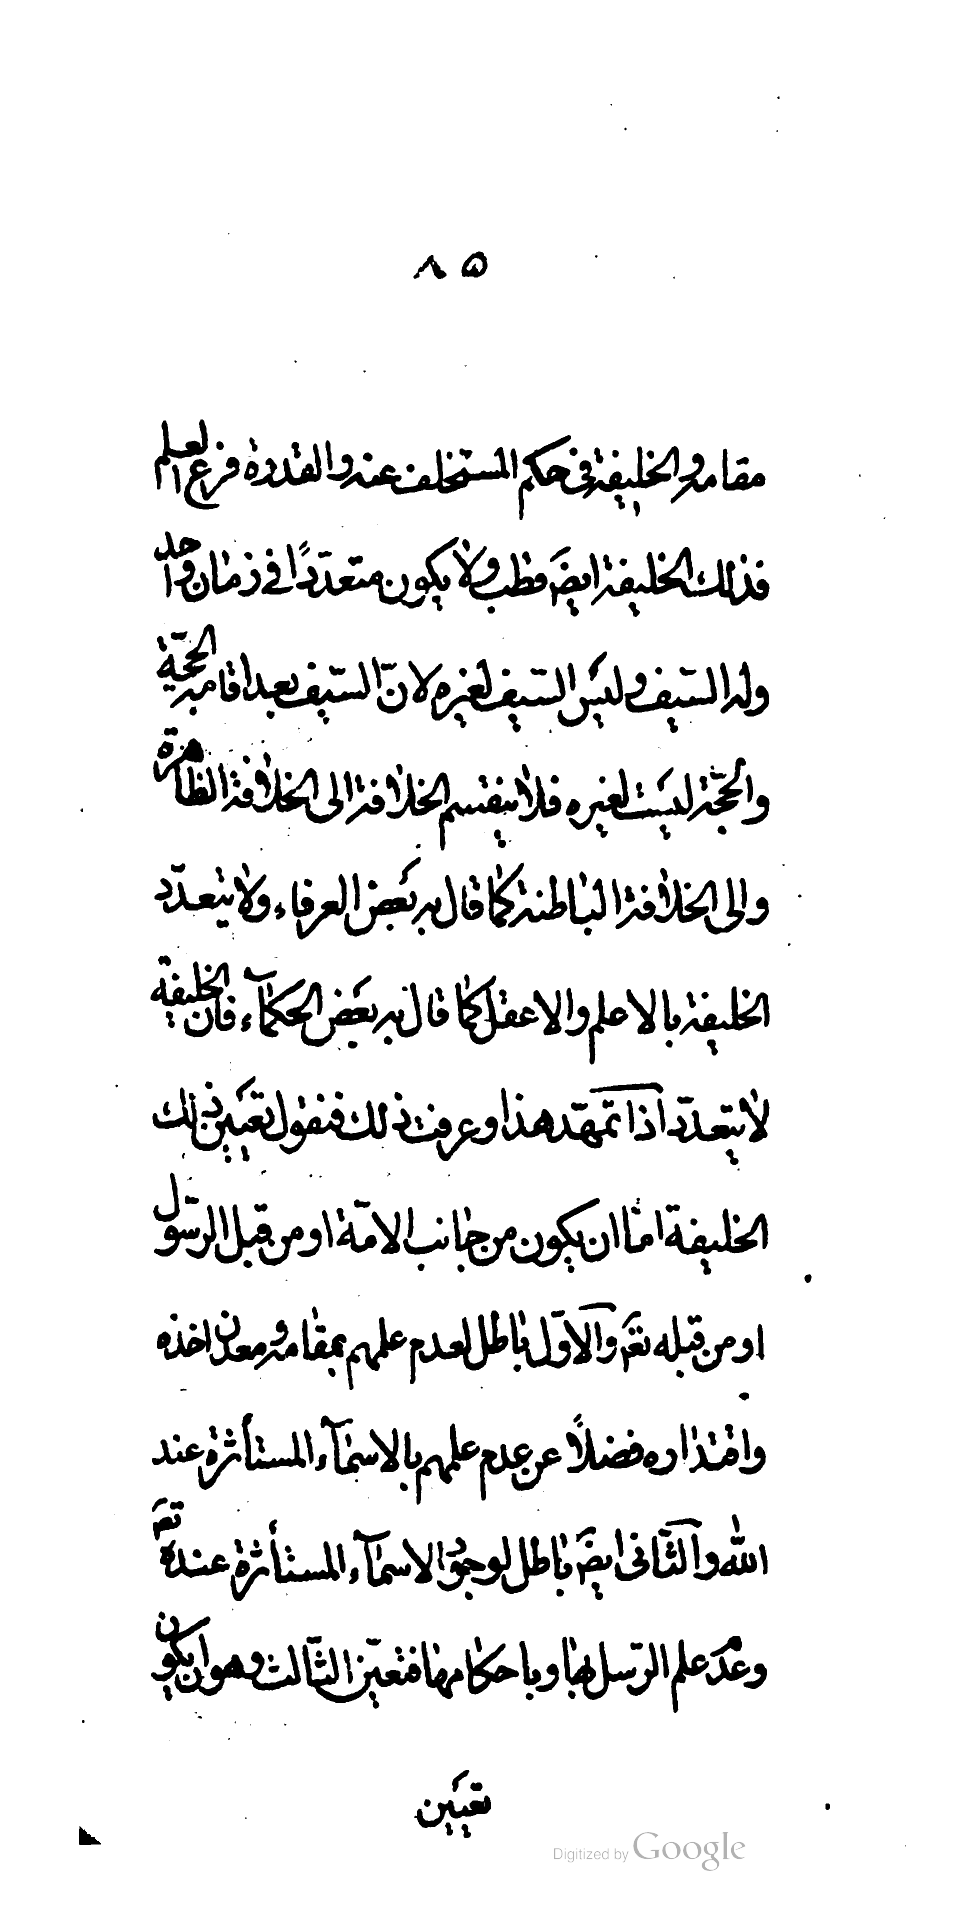 ٨٥
مقامه والخليفة في حكم المستخلف عنه والقدرة فرع العلم
فذلك الخليفة ايضَ قطب ولا يكون متعدّدًا في زمان واحد
وله السّيف وليس السّيف لغيره لانّ السّيف بعد اقامة الحجّة
والحجّة ليست لغيره فلا ينقسم الخلافة الى الخلافة الظاهرة
والى الخلافة الباطنة كما قال به بعض العرفاء ولا يتعدّد
الخليفة بالاعلم والاعقل كما قال به بعض الحكمآء فان الخليفة
لا يتعدّد اذا تمهّد هذا وعرفت ذلك فنقول تعيين ذلك
الخليفة امّا ان يكون من جانب الامّة او من قبل الرسول
او من قبله تعَ والاوّل باطل لعدم علمهم بمقامه ومعدن اخذه
واقتداره فضلاً عن عدم علمهم بالاسمآء المستأثرة عند
الله والثّانى ايضَ باطل لوجود الاسمآء المستأثرة عنده تعَ
وعدم علم الرّسل بها وباحكامها فتعيّن الثّالث وهو ان يكون
تعيين
Digitized by Google